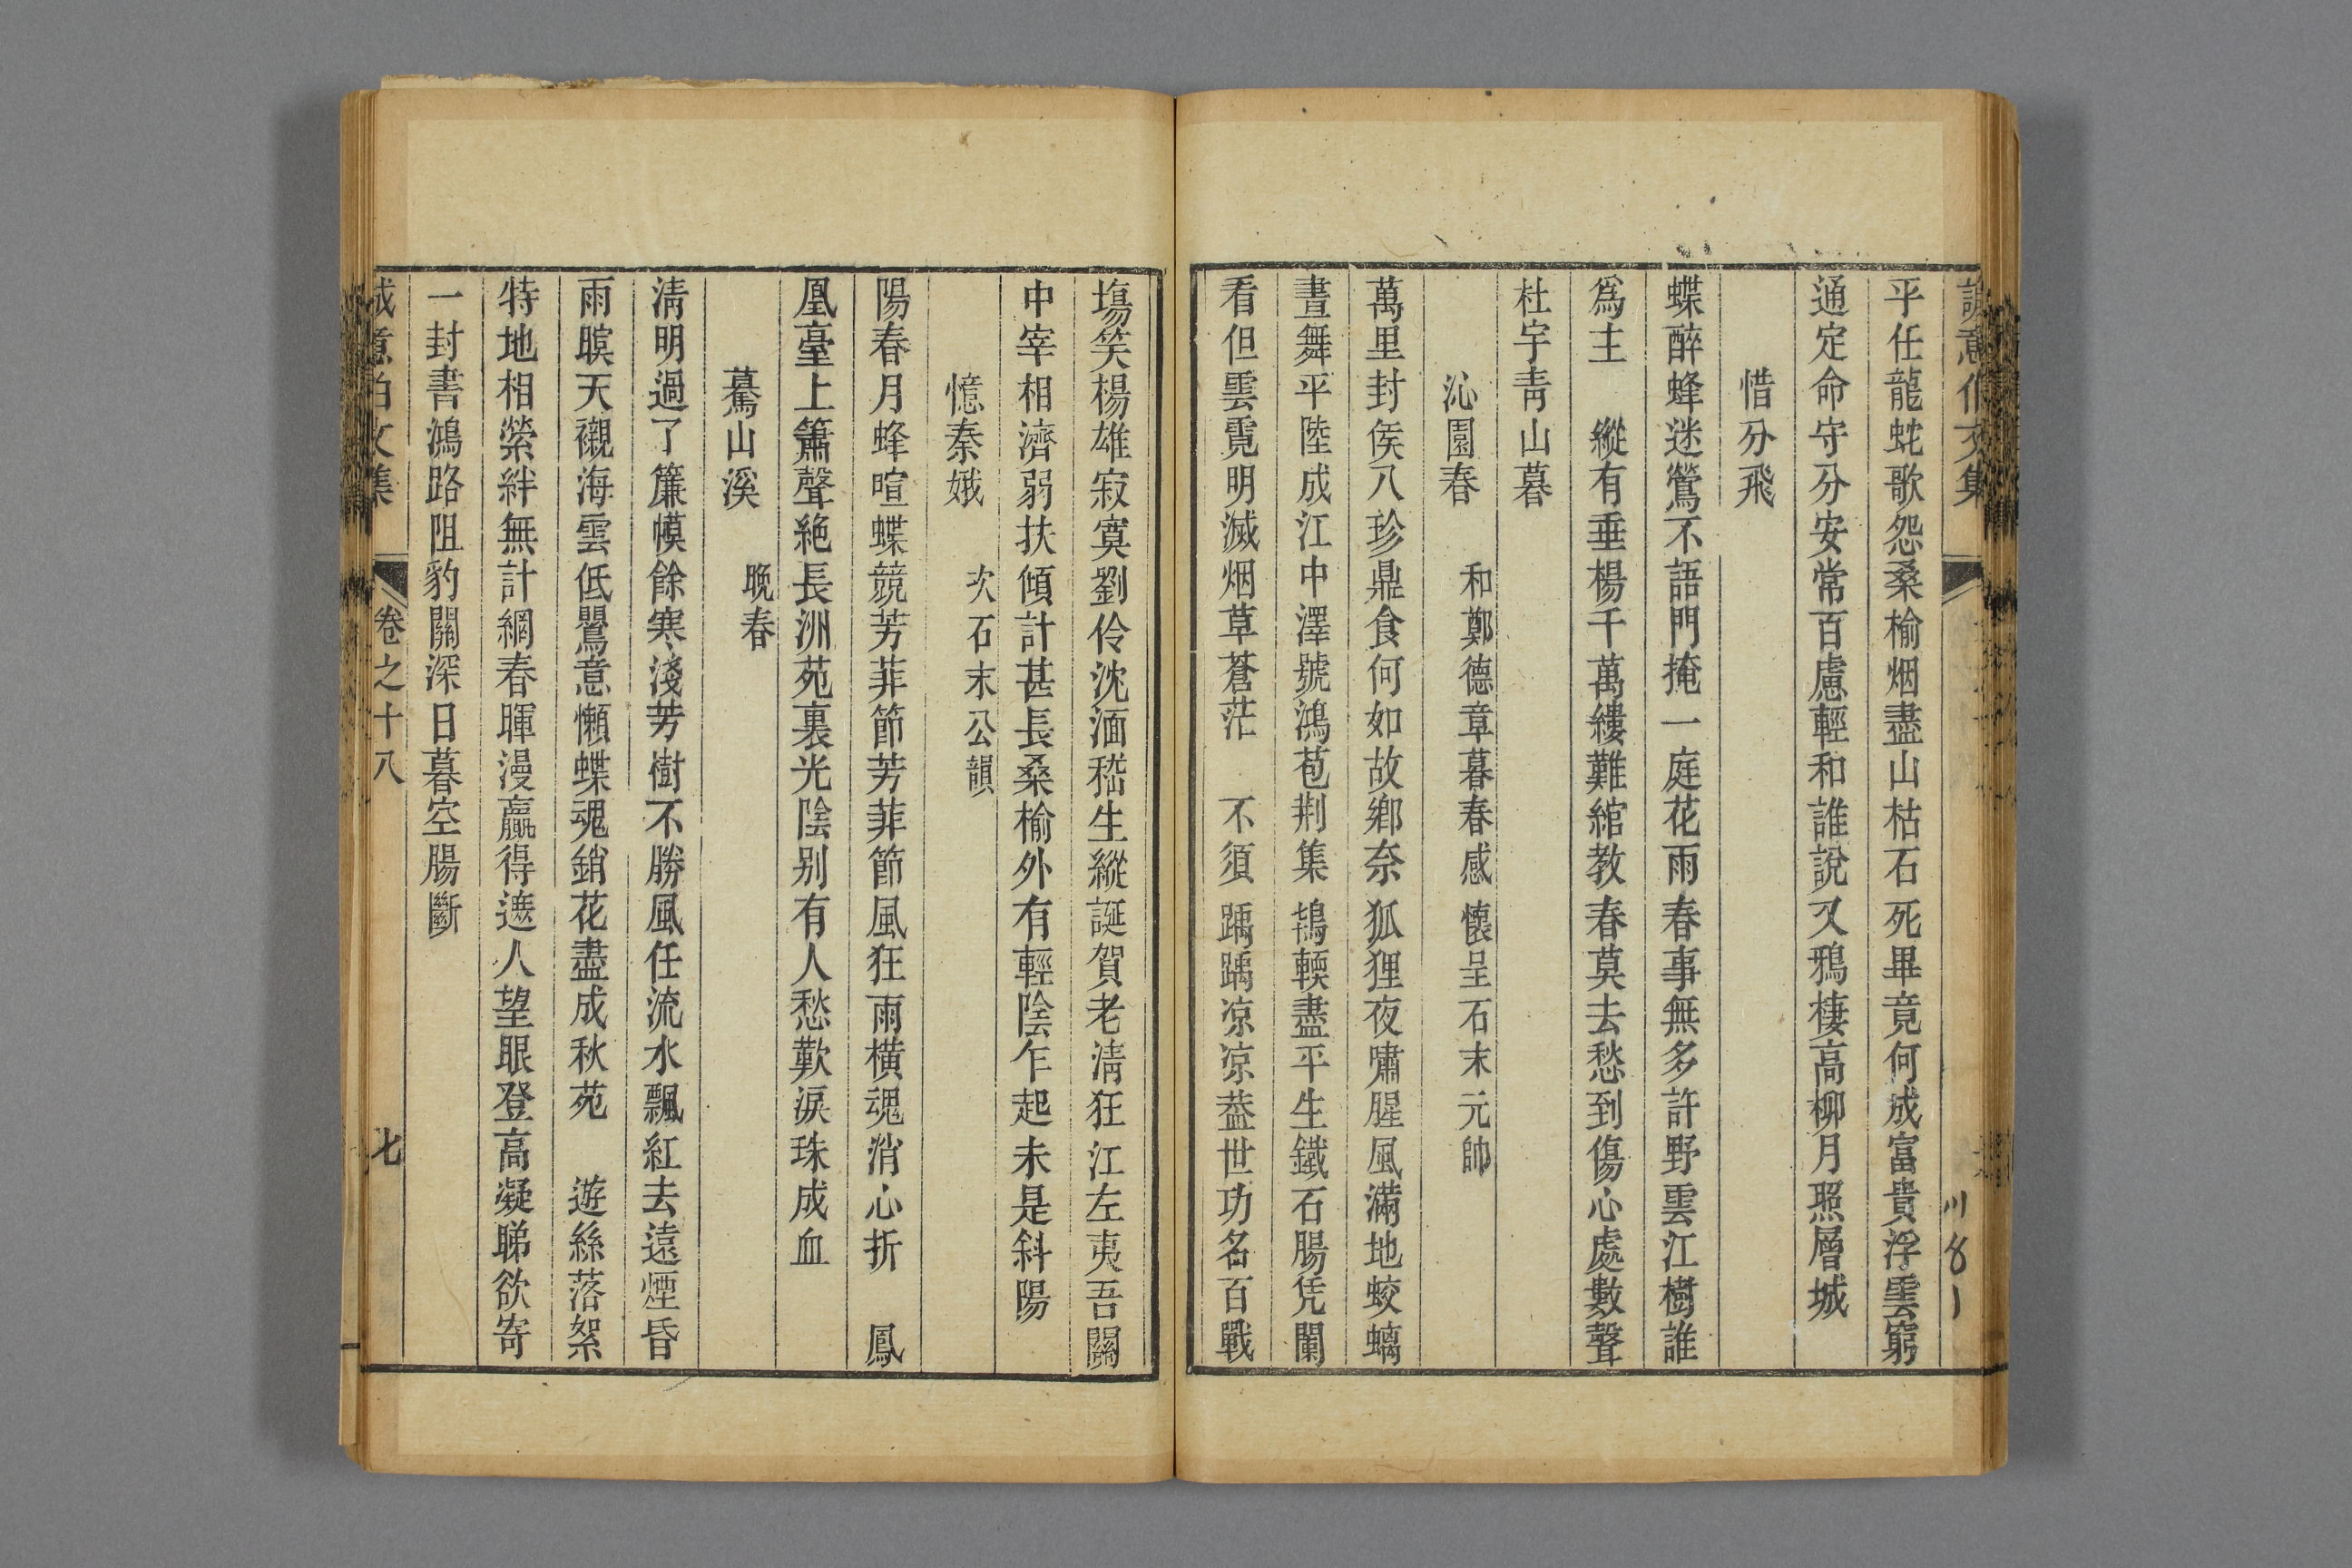 平任龍蛇歌怨桑榆烟盡山枯石死畢竟何成富貴浮雲窮
通定命守分安常百慮輕和誰說又鴉棲高柳月照層城
惜分飛
蝶醉蜂迷鶯不語門掩一庭花雨春事無多許野雲江樹誰
爲主　縱有垂楊千萬縷難綰教春莫去愁到傷心處數聲
杜宇靑山暮
沁園春　和鄭德章暮春感懷呈石末元帥
萬里封侯八珍鼎食何如故鄉奈狐狸夜嘯腥風滿地蛟螭
晝舞平陸成江中澤號鴻苞荆集鴇輭盡平生鐵石腸凭闌
看但雲霓明滅烟草蒼茫　不須踽踽凉凉葢世功名百戰
塲笑楊雄寂寞劉伶沈湎嵇生縱誕賀老淸狂江左夷吾關
中宰相濟弱扶傾計甚長桑榆外有輕陰乍起未是斜陽
憶秦娥　次石末公韻
陽春月蜂暄蝶競芳菲節芳菲節風狂雨橫魂消心折　鳳
凰臺上簫聲絶長洲苑裏光陰别有人愁歎淚珠成血
驀山溪　晚春
淸明過了簾幙餘寒淺芳樹不勝風任流水飄紅去遠煙昏
雨暝天襯海雲低鸎意懶蝶魂銷花盡成秋苑　遊絲落絮
特地相縈絆無計網春暉漫贏得遮人望眼登高凝睇欲寄
一封書鴻路阻豹關深日暮空腸斷
誠意伯文集　卷之十八　七